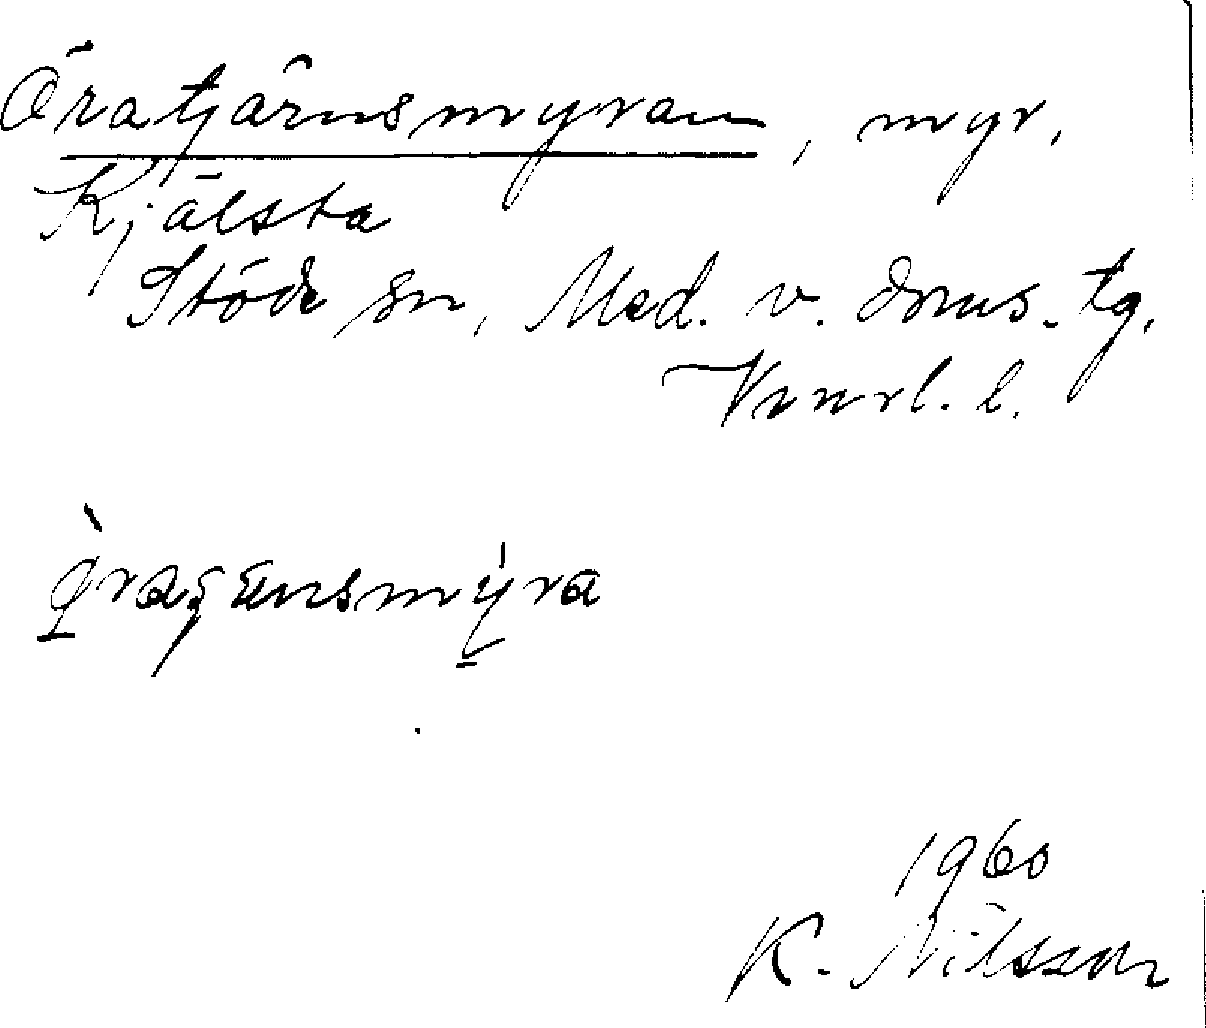 Öratjärnsmyran, myr.
Kjälsta
Stöde sn, Med. v. doms. tg,
Vnrl. l.
1960
K. Nilsson